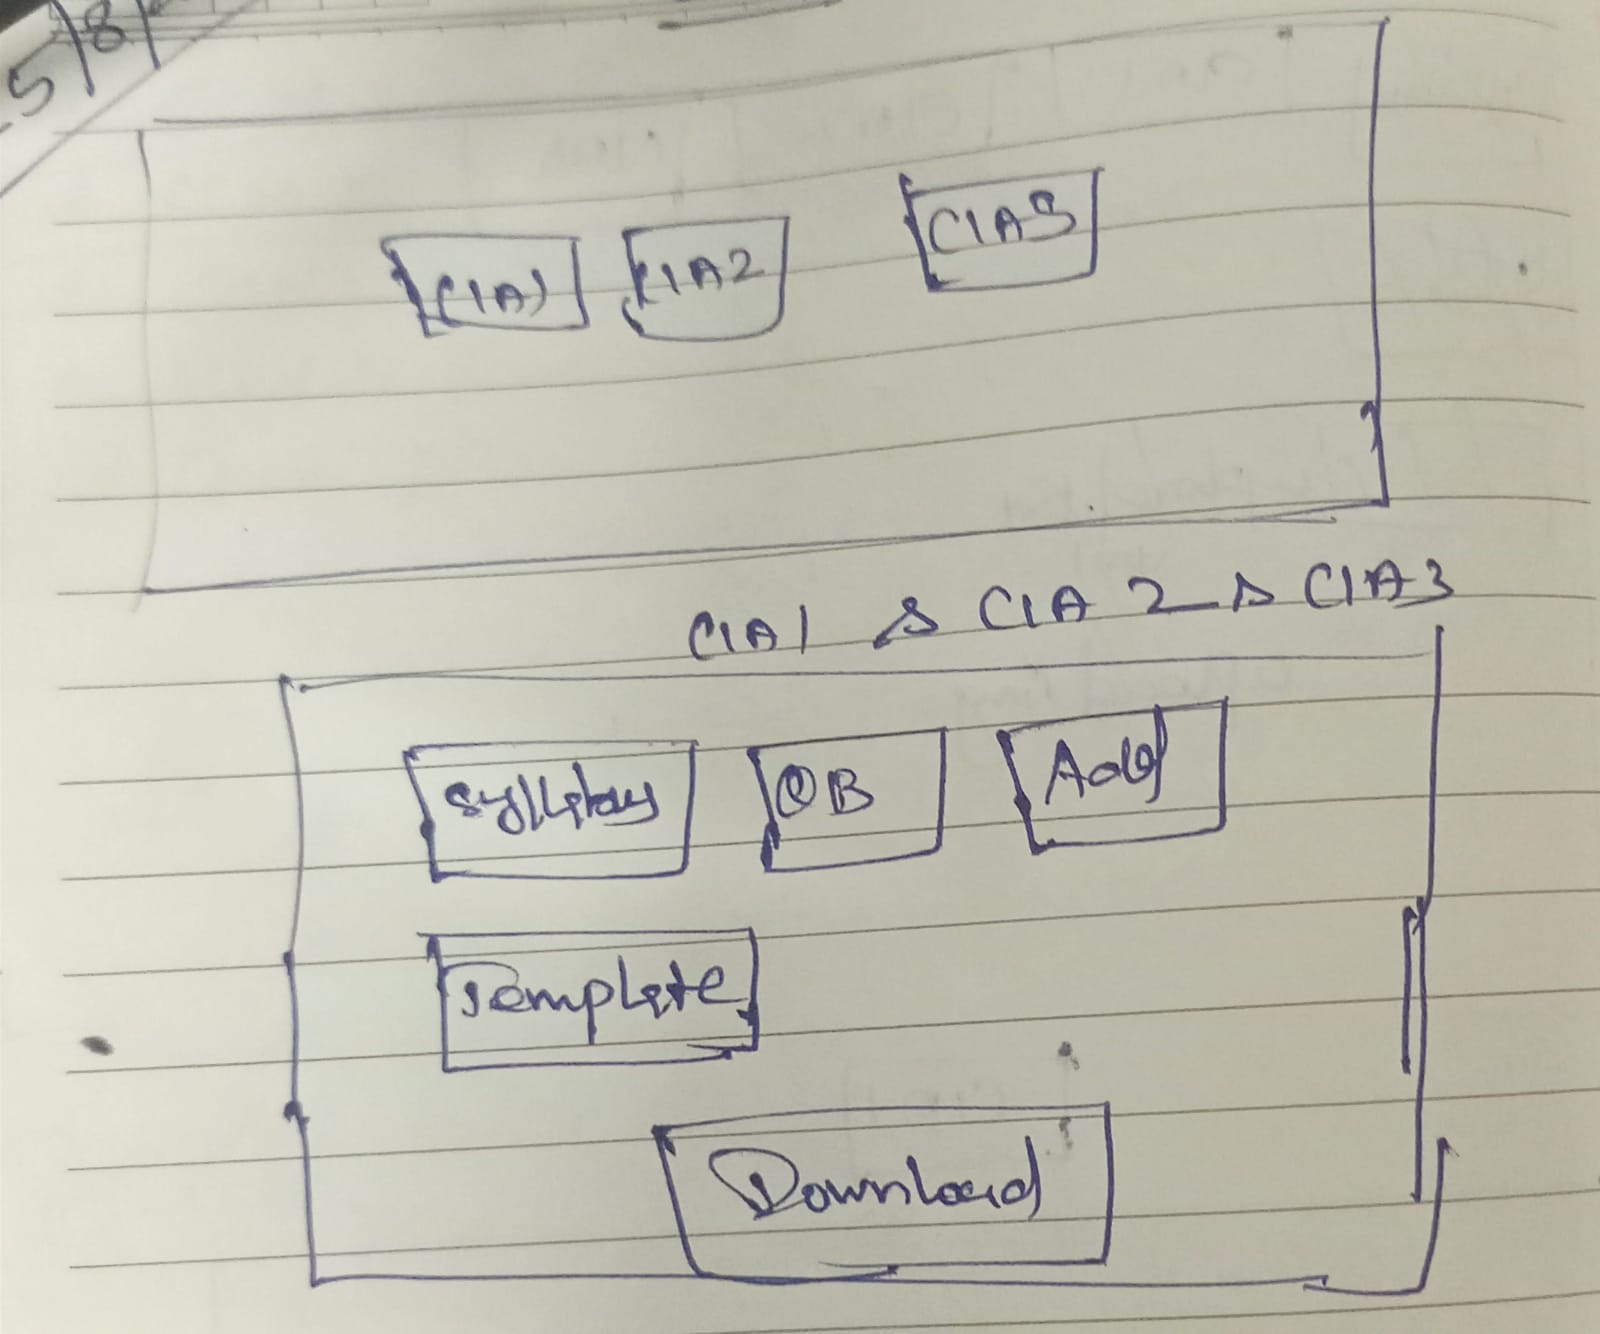 5/8/
CIA1 CIA2 CIA3
CIA1 & CIA 2 & CIA3
QB Add
Template
Download